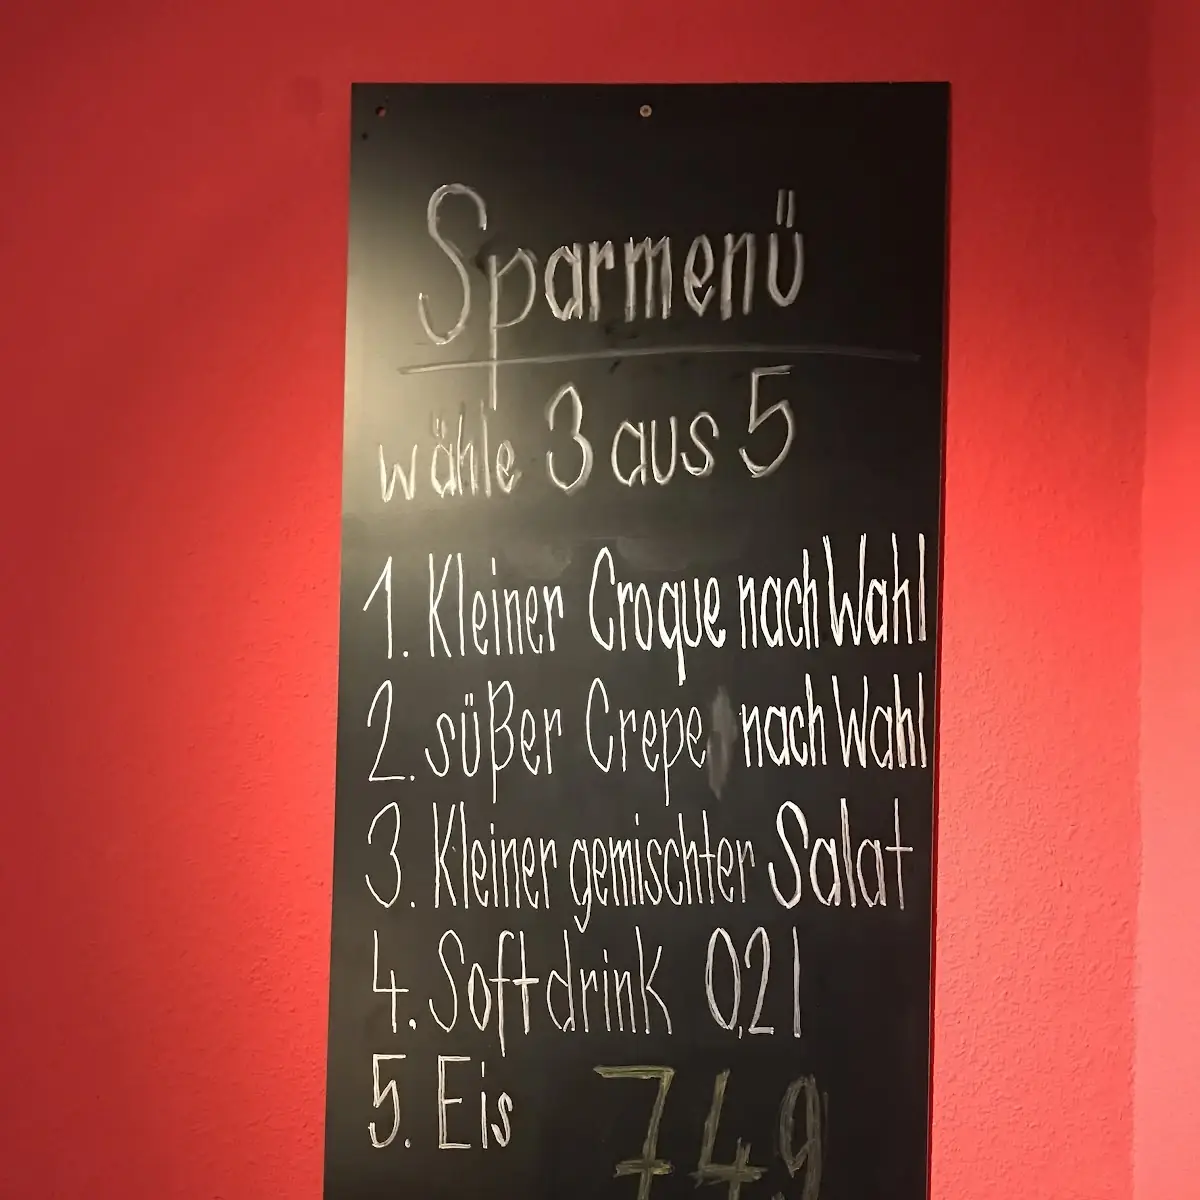 Sparmenü
wähle 3 aus 5
1. Kleiner Croque nach Wahl
2. süßer Crepe nach Wahl
3. Kleiner gemischter Salat
4. Softdrink 0,2l
5. Eis 7 49